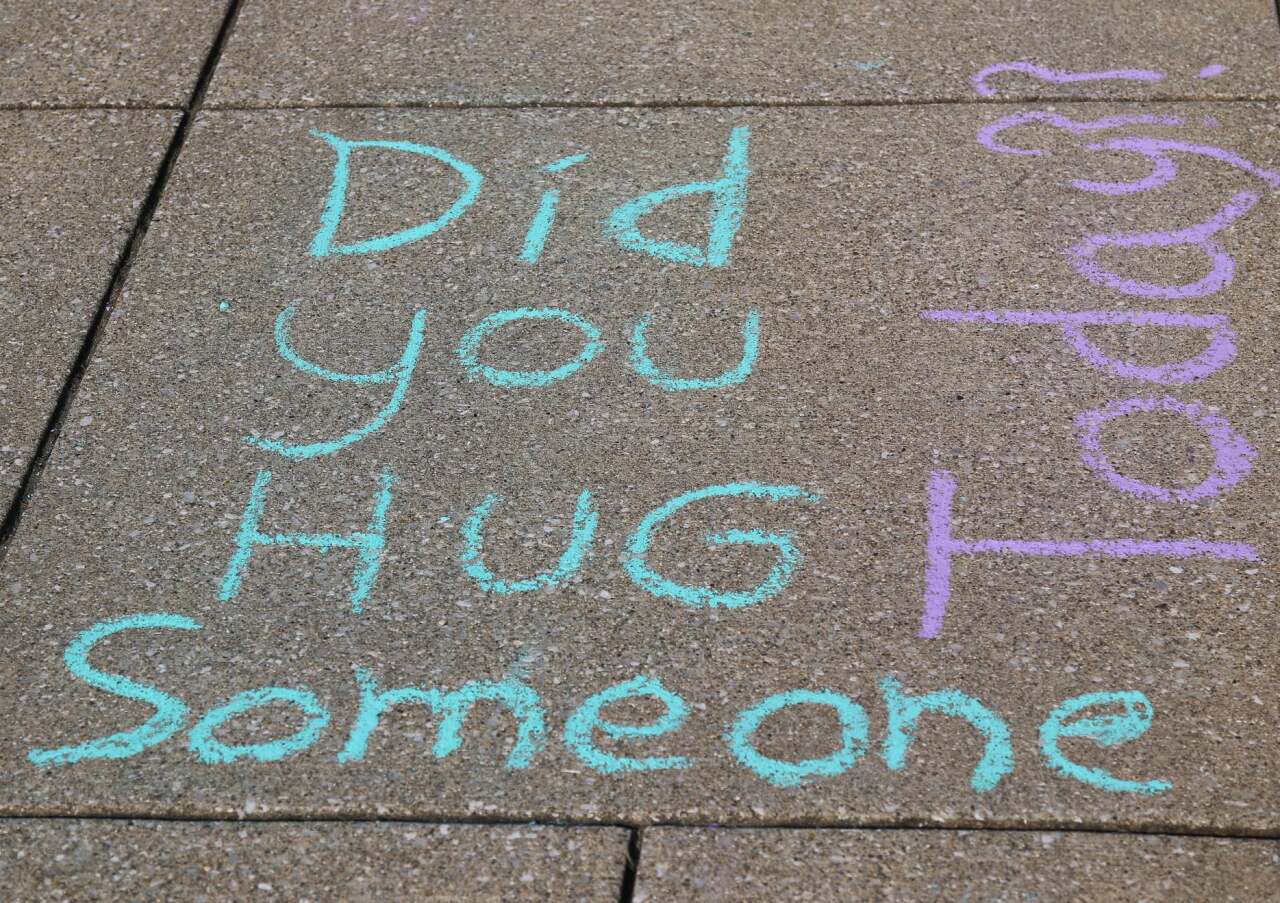 Did
you
HUG
Someone
Today??